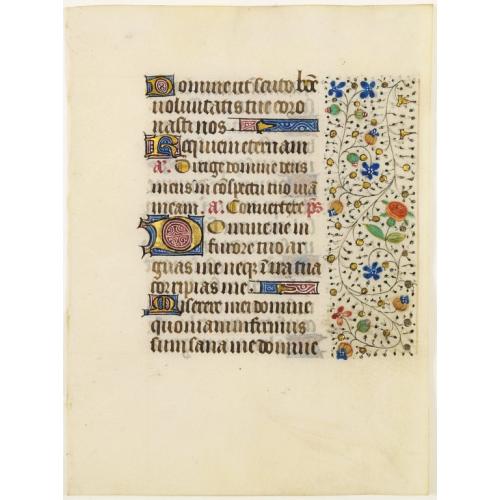 Domine ut scuto bõe
voluntatis tue coro
nasti nos
Requiem eternam
a'. Dirige domine deus
meus in cõspectu tuo viã
meam. a'. Convertere ps
Domine ne in
furore tuo ar
guas me neqʒ ĩ ira tua
corripias me.
Miserere mei domine
quoniam infirmus
sum sana me domine